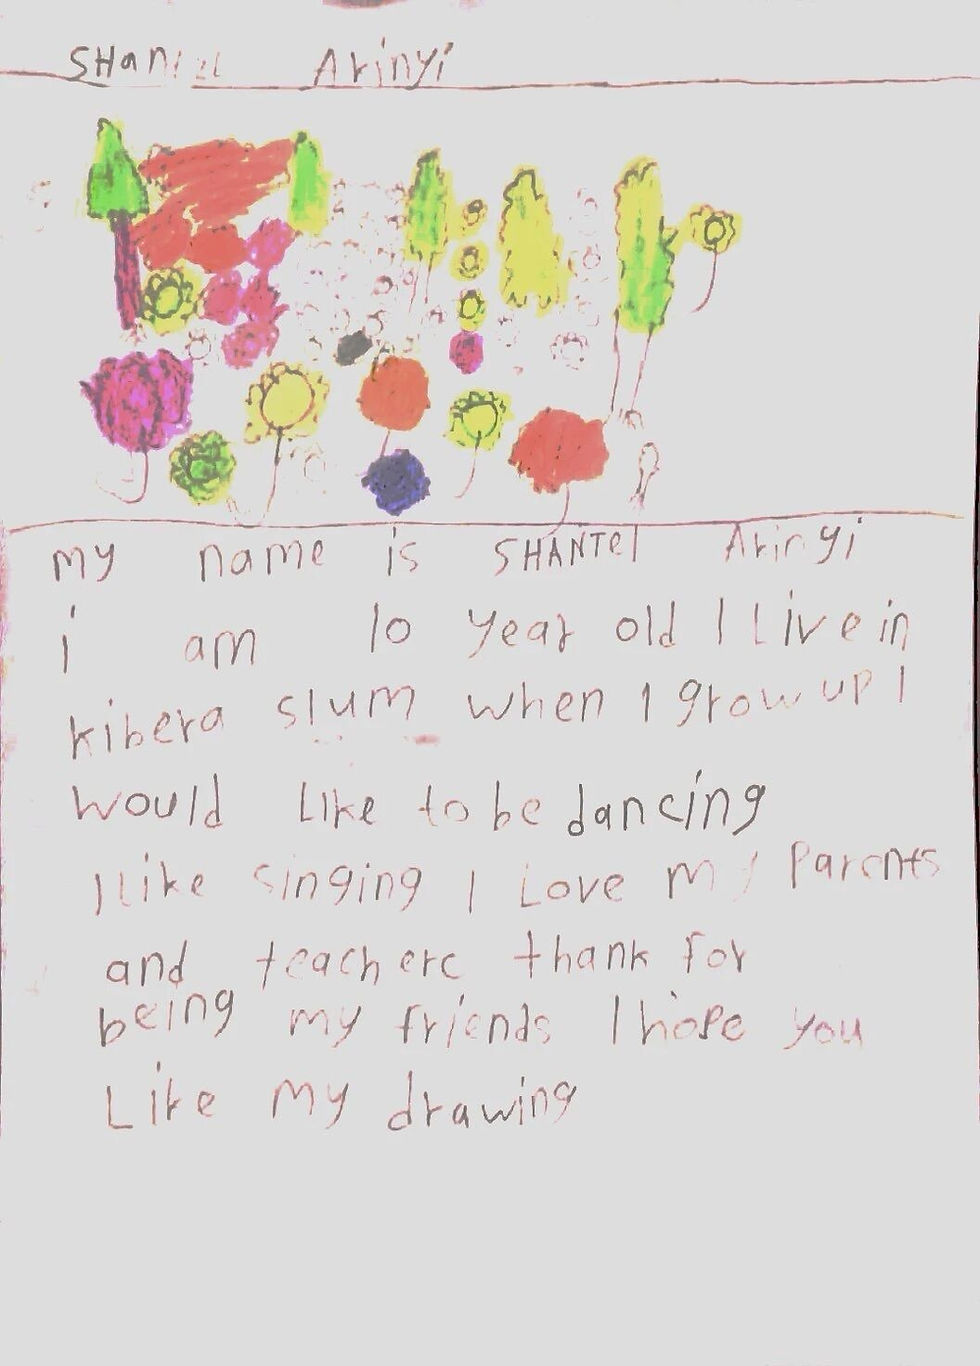 SHantel Arinyi
my name is SHANTEl Arinyi
i am 10 year old I Live in
kibera slum when I grow up I
would like to be dancing
I like singing I Love my Parents
and teacherc thank for
being my friends I hope you
Like my drawing